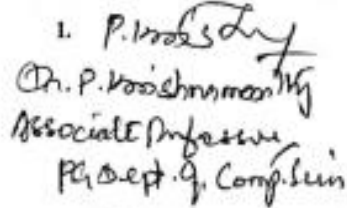 1. P. Krishn
(Dr. P. Krishnamoorthy
Associate Professor
PG Dept. of Comp. Scin